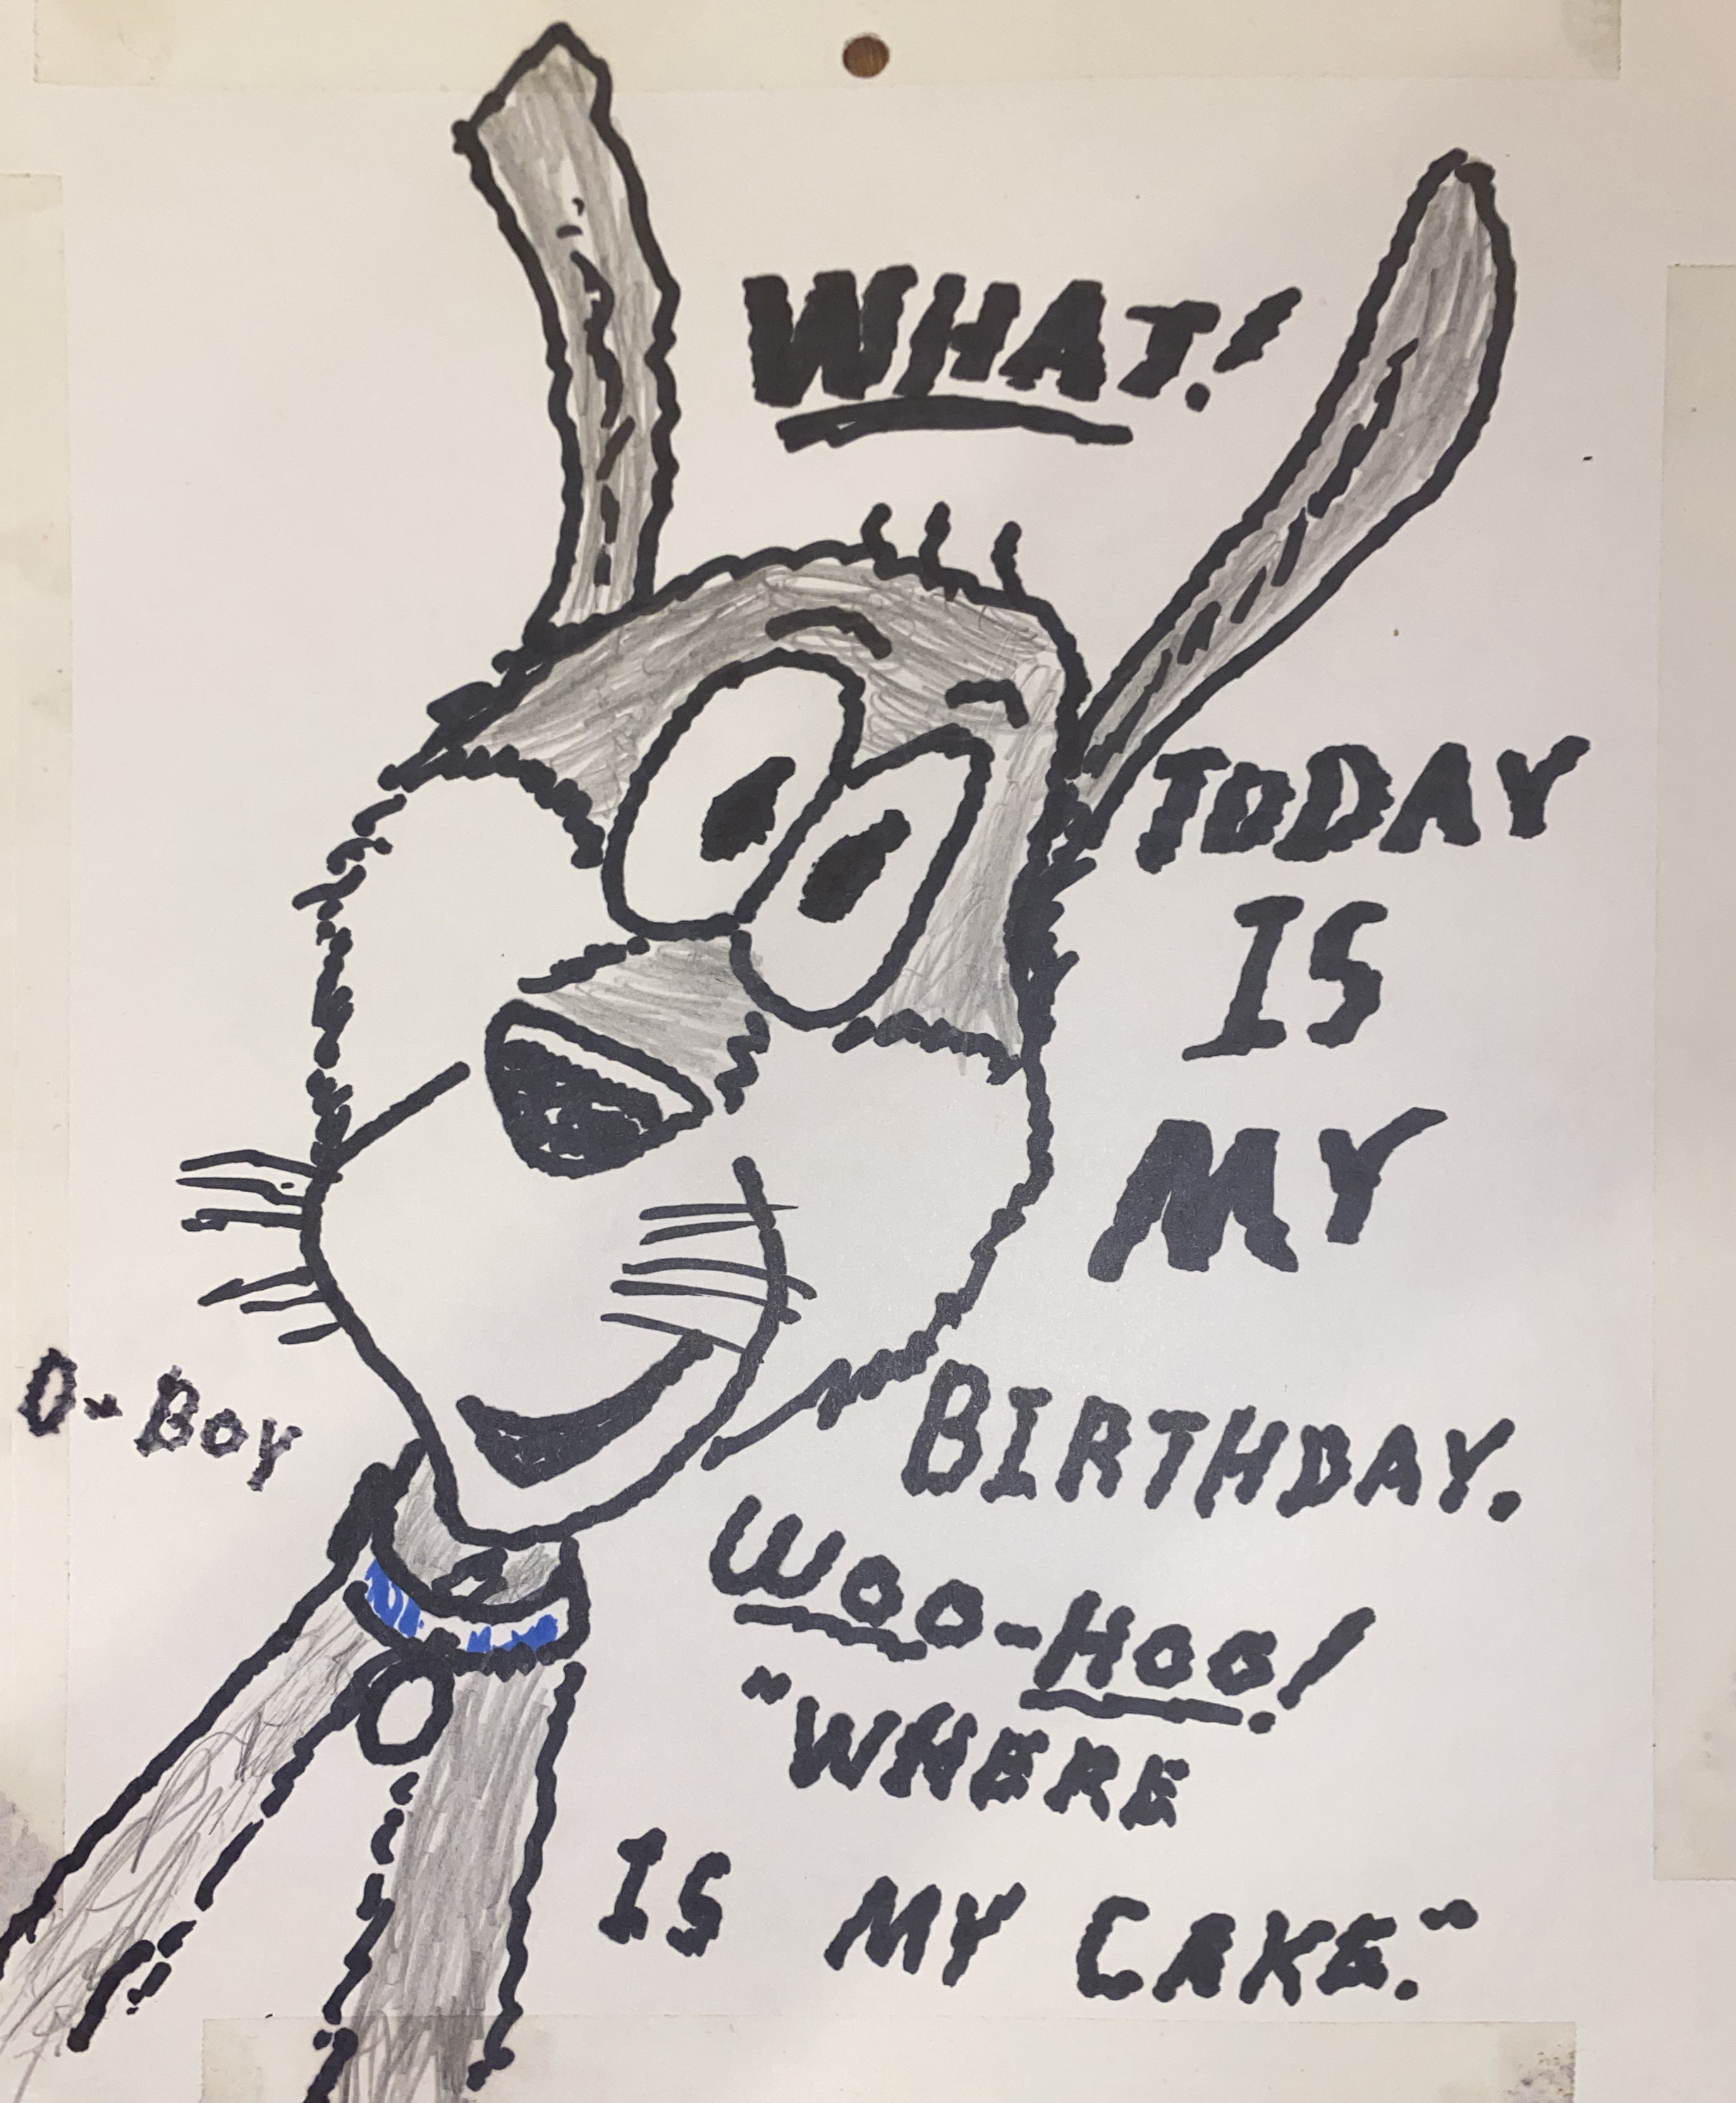 WHAT!
TODAY
IS
MY
BIRTHDAY.
O-Boy
WOO-HOO!
"WHERE
IS MY CAKE."